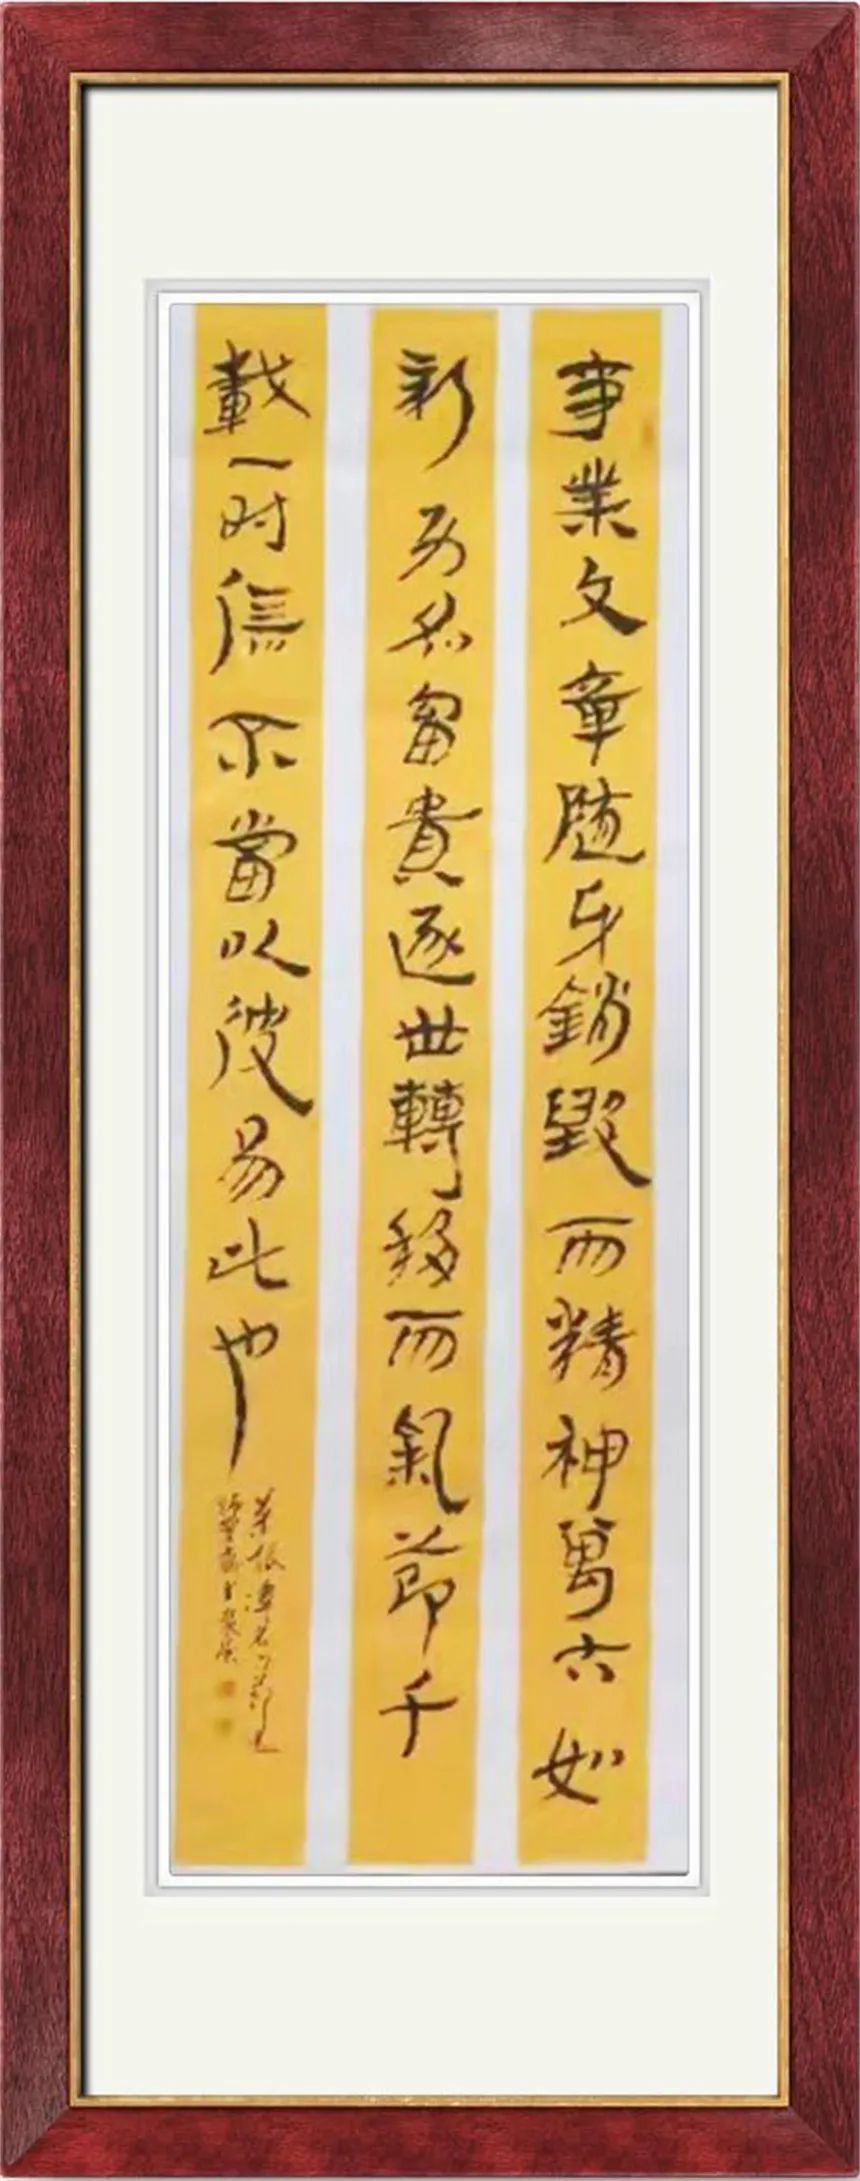 事業文章隨身銷毀而精神萬古如
新功名富貴逐世轉移而氣節千
載一时信不當以彼易此也
菜根潭名句